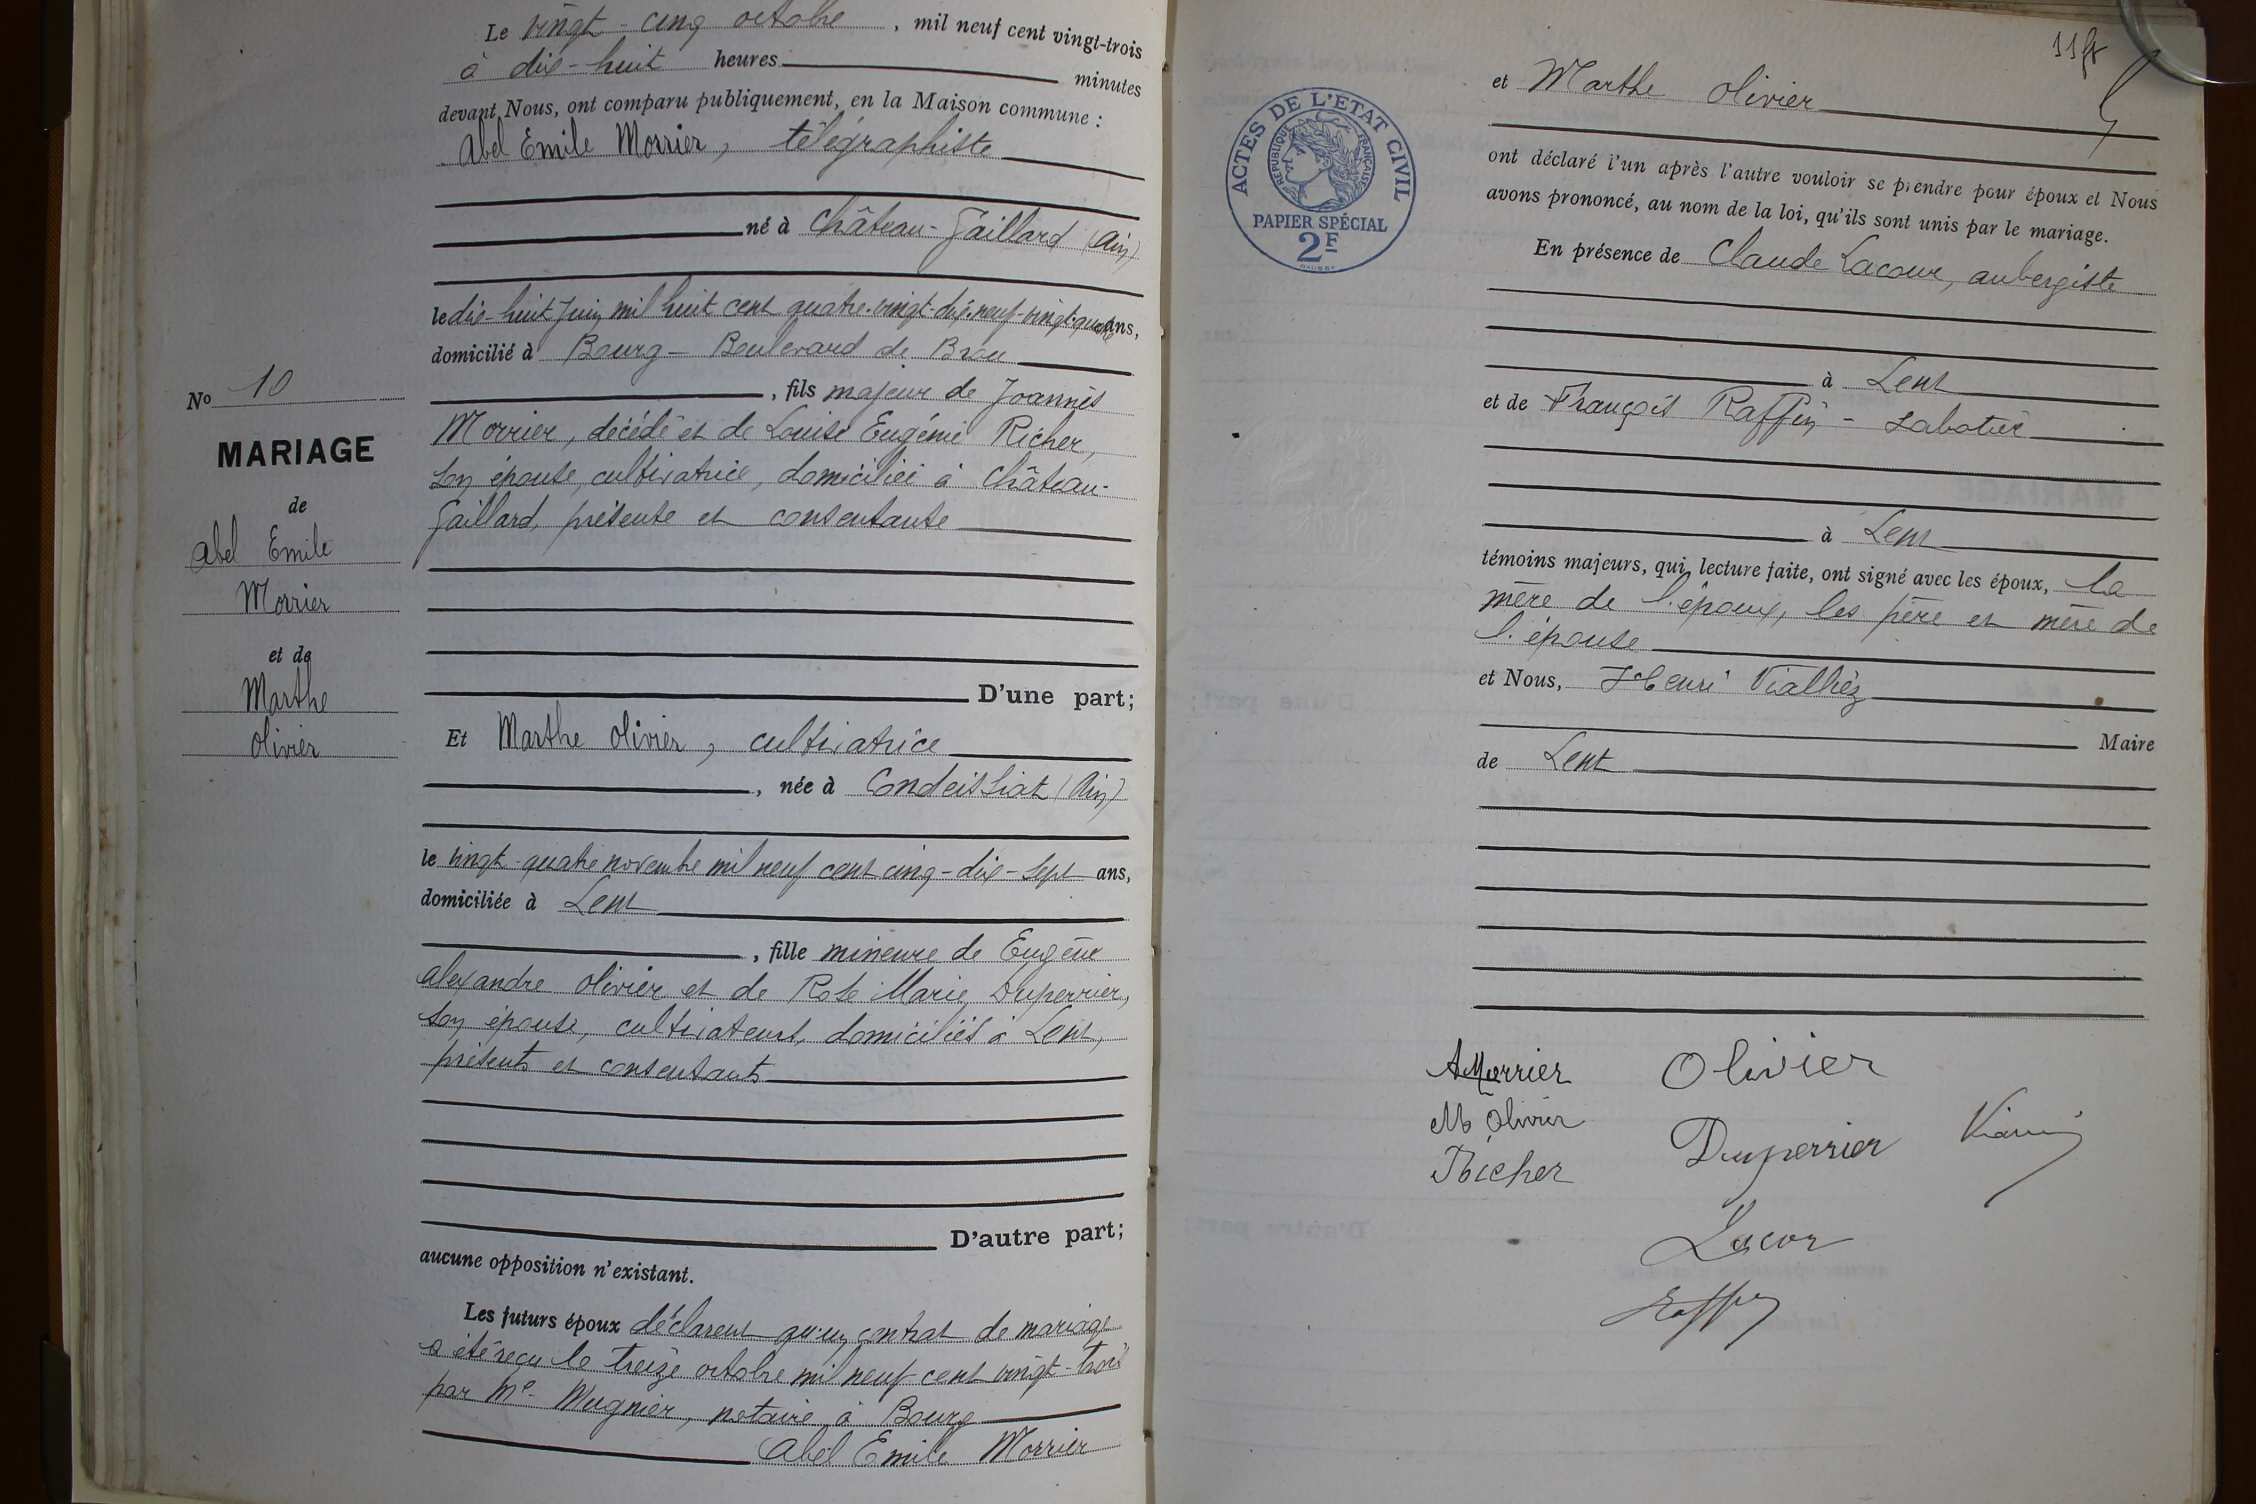 Le vingt-cinq octobre, mil neuf cent vingt-trois
à dix-huit heures minutes
devant Nous, ont comparu publiquement, en la Maison commune :
Abel Emile Morrier, télégraphiste
né à Château-Gaillard (Ain)
le dix-huit Juin mil huit cent quatre-vingt-dix-neuf-vingt-quatre ans,
domicilié à Bourg - Boulevard de Brou
, fils majeur de Joannès
Morrier, décédé et de Louise Eugénie Richer,
son épouse, cultivatrice, domiciliée à Château-
Gaillard, présente et consentante
D'une part;
No 10
MARIAGE
de
Abel Emile
Morrier
et de
Marthe
Olivier
Et Marthe Olivier, cultivatrice
, née à Condeissiat (Ain)
le vingt-quatre novembre mil neuf cent cinq-dix-sept ans,
domiciliée à Lent
, fille mineure de Eugène
Alexandre Olivier et de Rose Marie Duperrier,
son épouse, cultivateurs, domiciliés à Lent,
présents et consentants
D'autre part;
aucune opposition n'existant.
Les futurs époux déclarent qu'un contrat de mariage
a été reçu le treize octobre mil neuf cent vingt-trois
par Me Mugnier, notaire à Bourg
Abel Emile Morrier
et Marthe Olivier
ACTES DE L'ETAT CIVIL
REPUBLIQUE FRANÇAISE
PAPIER SPÉCIAL
2F
ont déclaré l'un après l'autre vouloir se prendre pour époux et Nous
avons prononcé, au nom de la loi, qu'ils sont unis par le mariage.
En présence de Claude Lacour, aubergiste
à Lent
et de François Raffin - sabotier
à Lent
témoins majeurs, qui, lecture faite, ont signé avec les époux, la
mère de l'époux, les père et mère de
l'épouse
et Nous, Henri
Maire
de Lent
AMorrier Olivier
M Olivier
Richer Duperrier
Lacour
Raffin